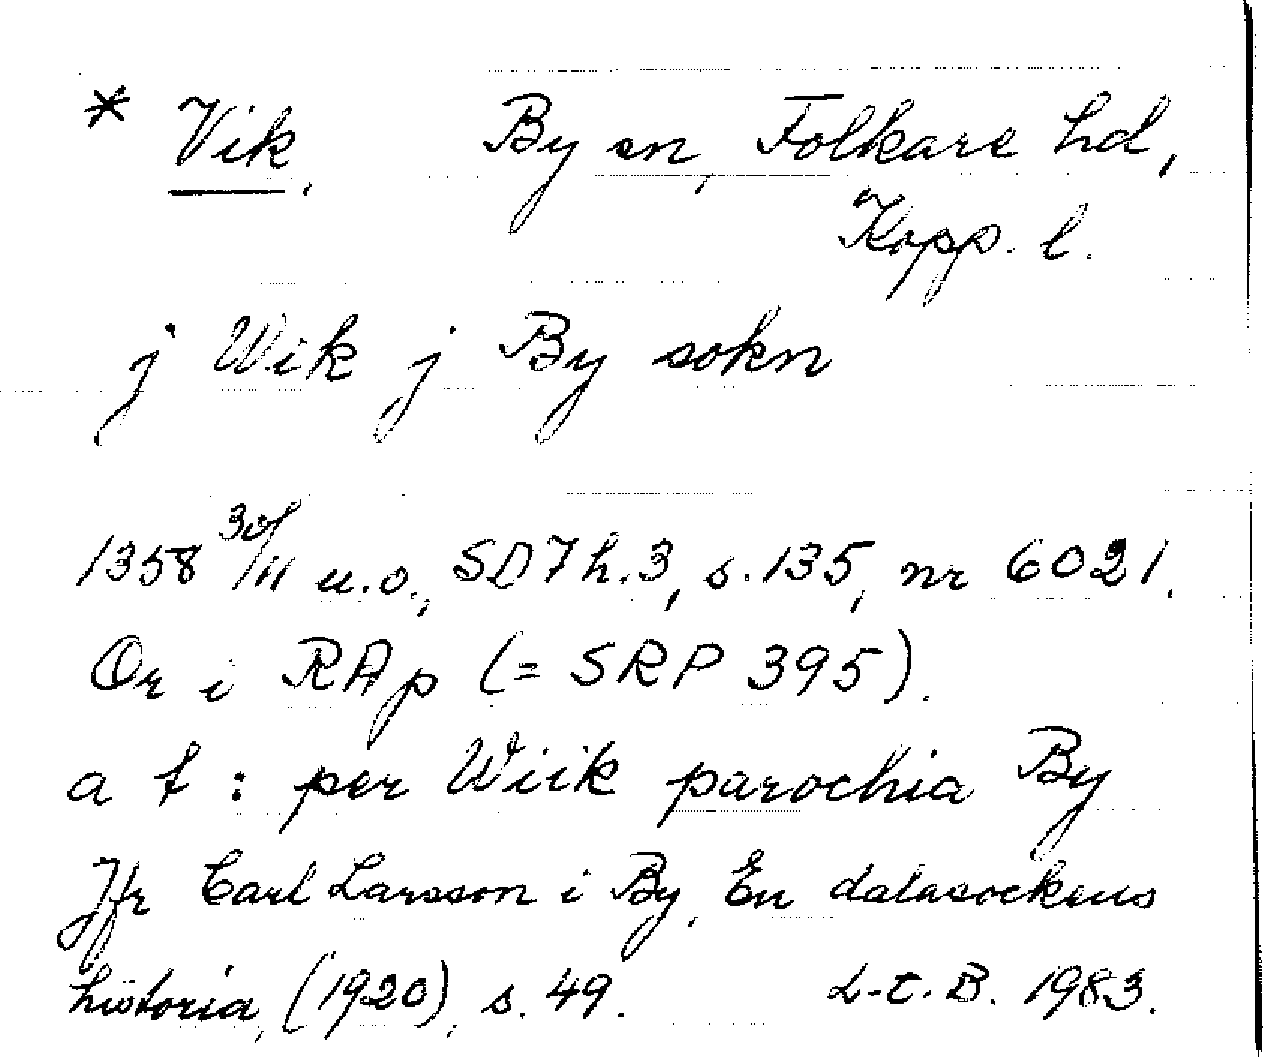 * Vik. By sn, Folkare hd,
Kopp. l.
j Wik j By sokn
1358 30/11 u.o., SD7 h.3, s.135, nr 6021.
Or i RAp (= SRP 395).
a t : per Wiik parochia By
Jfr Carl Larsson i By, En dalasockens
historia, (1920), s. 49. L-E. B. 1983.